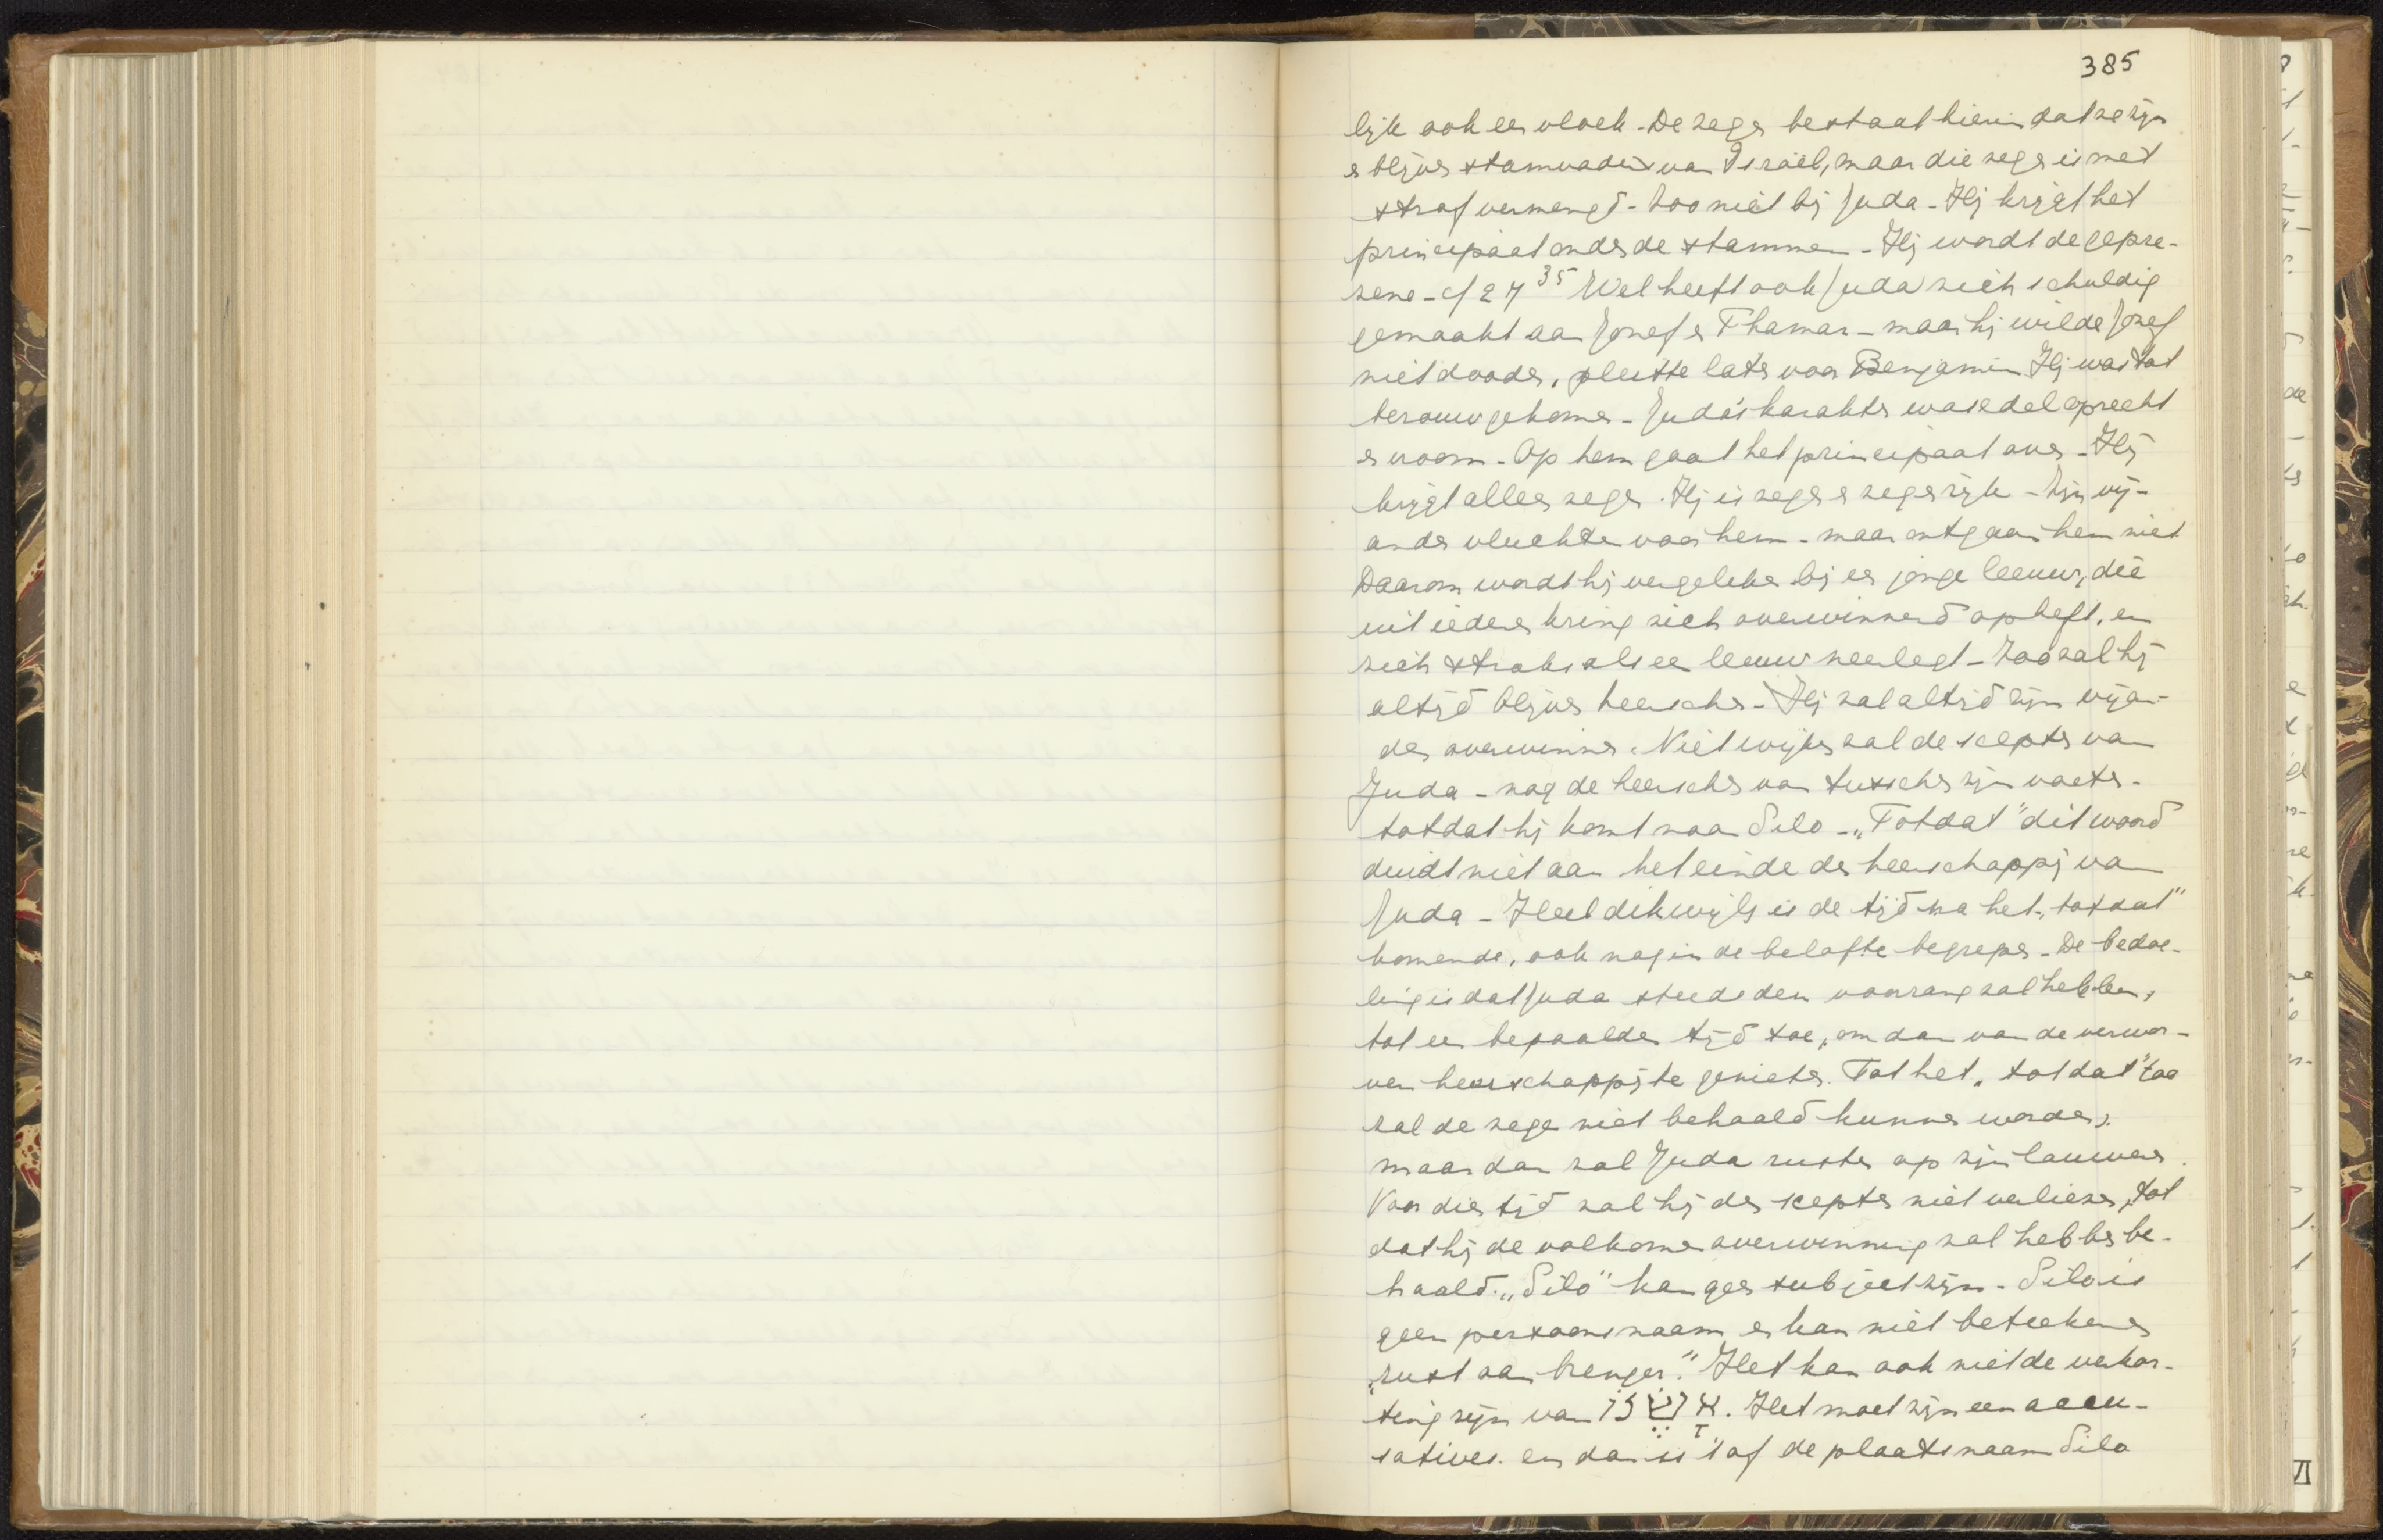 385
lijk ook een vloek - De zegen bestaat hierin dat ze zijn
en blijven stamvaders van Israël, maar die zegen is met
straf vermengd - Zoo niet bij Juda - Hij krijgt het
principaat onder de stammen - Hij wordt de gepre-
zene - cf 29 35 Wel heeft ook Juda zich schuldig
gemaakt aan Jozef en Thamar - maar hij wilde Jozef
niet dooden, pleitte later voor Benjamin Hij was tot
berouw gekomen - Juda's karakter was edel oprecht
en vroom - Op hem gaat het principaat over - Hij
krijgt alleen zegen. Hij is zegen en zegenrijk - Zijn vij-
anden vluchten voor hem - maar ontgaan hem niet
Daarom wordt hij vergeleken bij een jonge leeuw, die
uit iederen kring zich overwinnend opheft, en
zich straks als een leeuw neerlegt - Zoo zal hij
altijd blijven heerschen - Hij zal altijd zijn vijan-
den overwinnen. Niet wijken zal de scepter van
Juda - nog de heerscher van tusschen zijn voeten -
totdat hij komt naar Silo - „Totdat" dit woord
duidt niet aan het einde der heerschappij van
Juda - Heel dikwijls is de tijd na het „totdat"
komende, ook nog in de belofte begrepen - De bedoe-
ling is dat Juda steeds den voorrang zal hebben,
tot een bepaalden tijd toe, om dan van de verwor-
ven heerschappij te genieten. Tot het „totdat" toe
zal de zege niet behaald kunnen worden,
maar dan zal Juda rusten op zijn lauweren.
Voor dien tijd zal hij den scepter niet verliezen, tot
dat hij de volkomen overwinning zal hebben be-
haald. „Silo" kan geen subject zijn - Silo is
geen persoonsnaam en kan niet beteekenen
„rust aanbrenger." Het kan ook niet de verkor-
ting zijn van אָשֶׁר לוֹ. Het moet zijn een accu-
sativus. en dan is 't of de plaatsnaam Silo